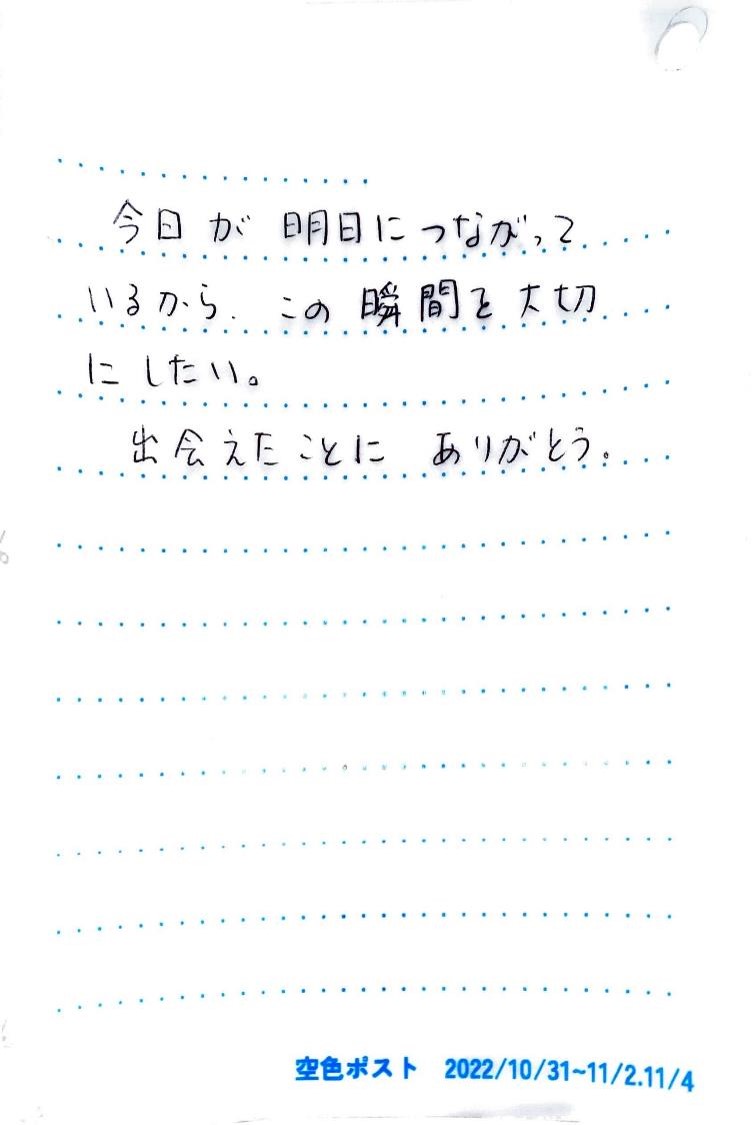 今日が明日につながって
いるから、この瞬間を大切
にしたい。
出会えたことに ありがとう。
空色ポスト 2022/10/31~11/2.11/4